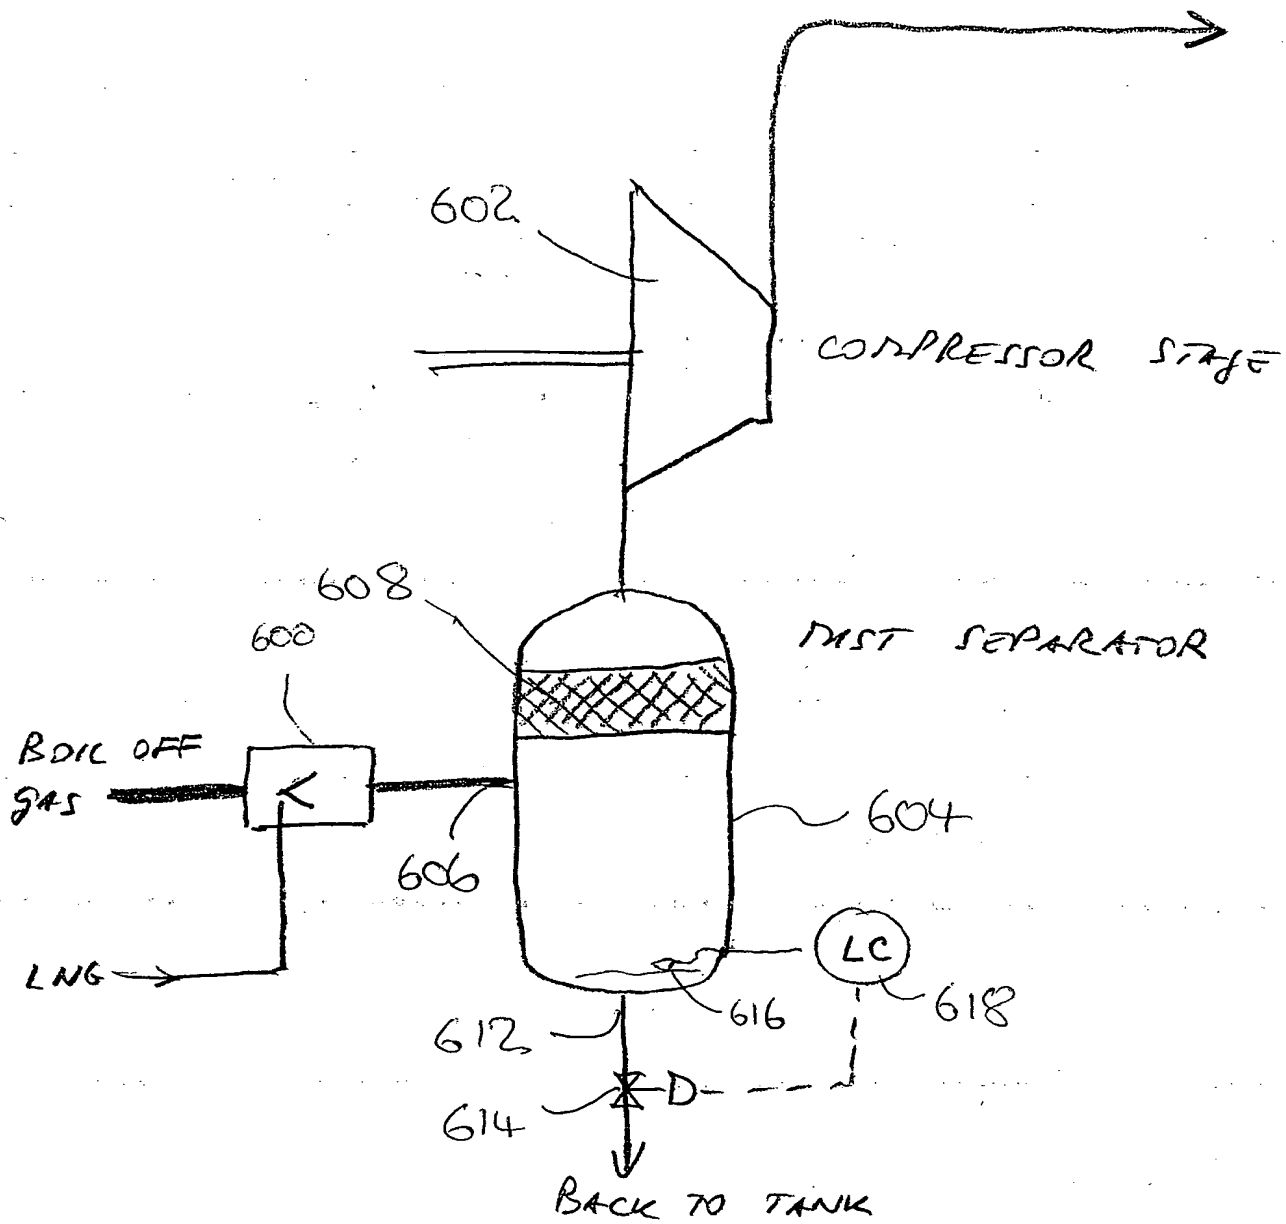 602
COMPRESSOR STAGE
608
600
MIST SEPARATOR
BOIL OFF
GAS
604
606
LNG
LC
616
618
612
D
614
BACK TO TANK